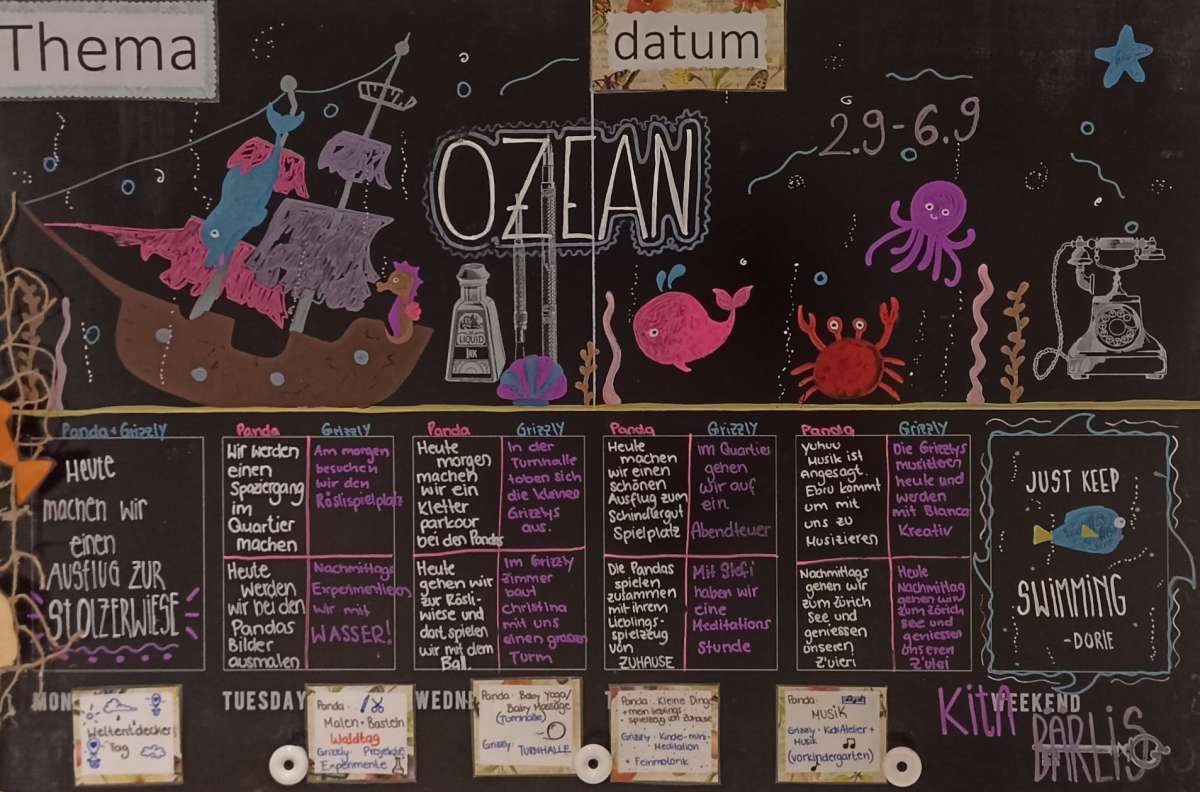 Thema
datum
OZEAN
2.9-6.9
LIQUID
INK
Panda + Grizzly
Heute
machen wir
einen
AUSFLUG ZUR
STOLZERWIESE
Panda
Wir werden
einen
Spaziergang
im
Quartier
machen
Grizzly
Am morgen
besuchen
wir den
Röslispielplatz
Heute
werden
wir bei den
Pandas
Bilder
ausmalen
Nachmittags
Experimentieren
wir mit
WASSER!
Panda
Heute
morgen
machen
wir ein
Kletter
parkour
bei den Pandas
Grizzly
In der
Turnhalle
toben sich
die kleinen
Grizzlys
aus.
Heute
gehen wir
zur Rösli-
wiese und
dort spielen
wir mit dem
Ball.
Im Grizzly
Zimmer
baut
Christina
mit uns
einen grossen
Turm
Panda
Heute
machen
wir einen
schönen
Ausflug zum
Schindlergut
Spielplatz
Grizzly
Im Quartier
gehen
wir auf
ein
Abendteuer
Die Pandas
spielen
zusammen
mit ihrem
Lieblings-
spielzeug
von
ZUHAUSE
Mit Stefi
haben wir
eine
Meditations
Stunde
Panda
Yuhuu
Musik ist
Angesagt.
Ebru kommt
um mit
uns zu
Musizieren
Grizzly
Die Grizzlys
musizieren
heute und
werden
mit Bianca
Kreativ
Nachmittags
gehen wir
zum Zürich
See und
geniessen
unseren
Z'vieri
Heute
Nachmittag
gehen wir
zum Zürich,
see und
geniessen
unseren
Z'vieri
JUST KEEP
SWIMMING
-DORIE
MON
TUESDAY
WEDN
WEEKEND
Weltentdecker
Tag
Panda:
Malen + Basteln
Waldtag
Grizzly: Projekte
Experimente
Panda: Baby Yoga/
Baby Massage
(Turnhalle)
Grizzly: TURNHALLE
Panda: Kleine Dinge
+ mein lieblings-
spielzeug von zuhause
Grizzly: Kinder-mini-
Meditation
+ Feinmotorik
Panda:
MUSIK
Grizzly: KidsAtelier +
Musik
(vorkindergarten)
KitA
BARLiS